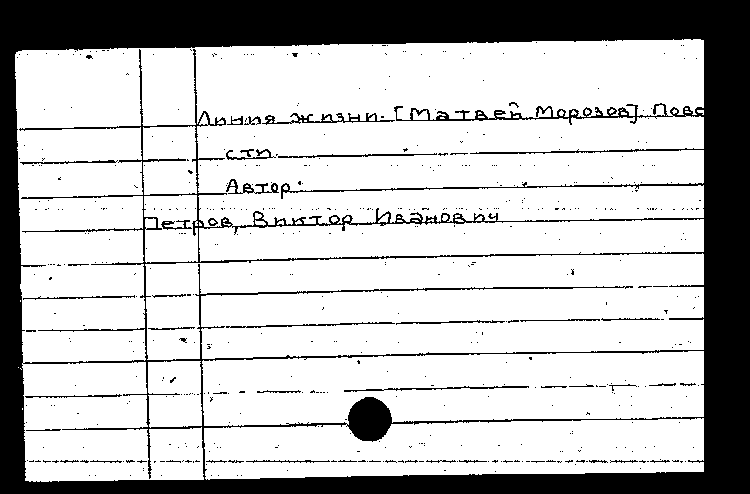 Линия жизни. [Матвей Морозов]. Пове
сти.
Автор:
Петров, Виктор Иванович